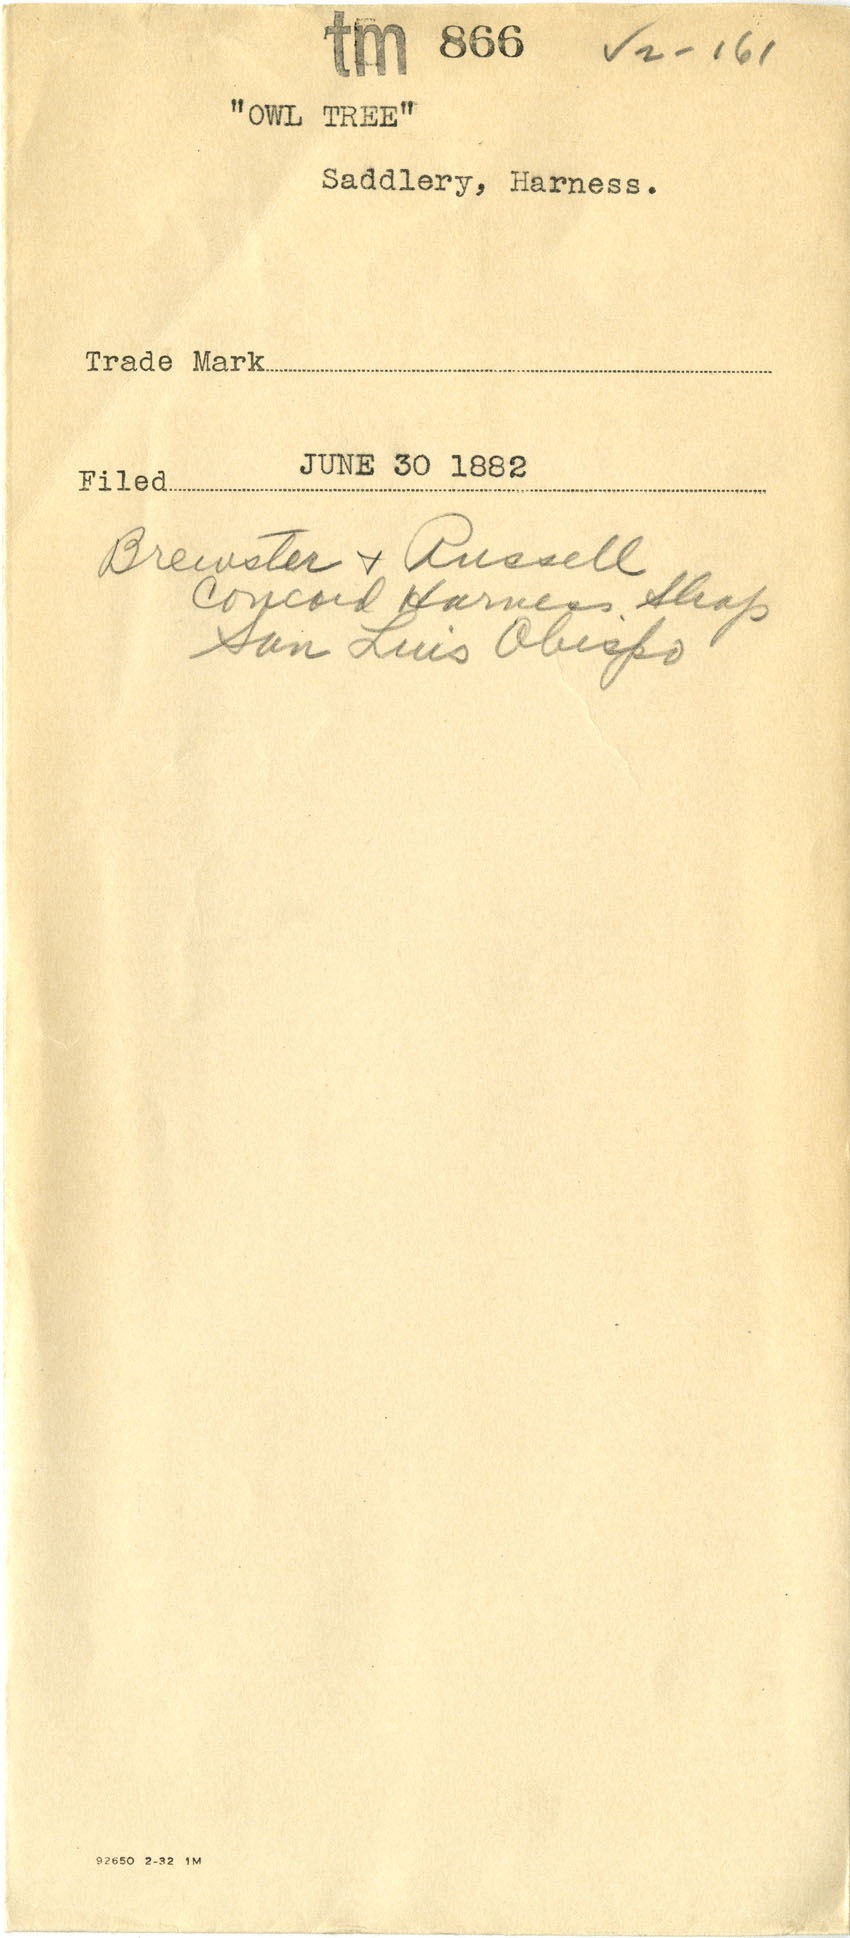 tm 866 √2-161
"OWL TREE"
Saddlery, Harness.
Trade Mark
Filed JUNE 30 1882
Brewster + Russell
Concord Harness Shop
San Luis Obispo
92650 2-32 1M